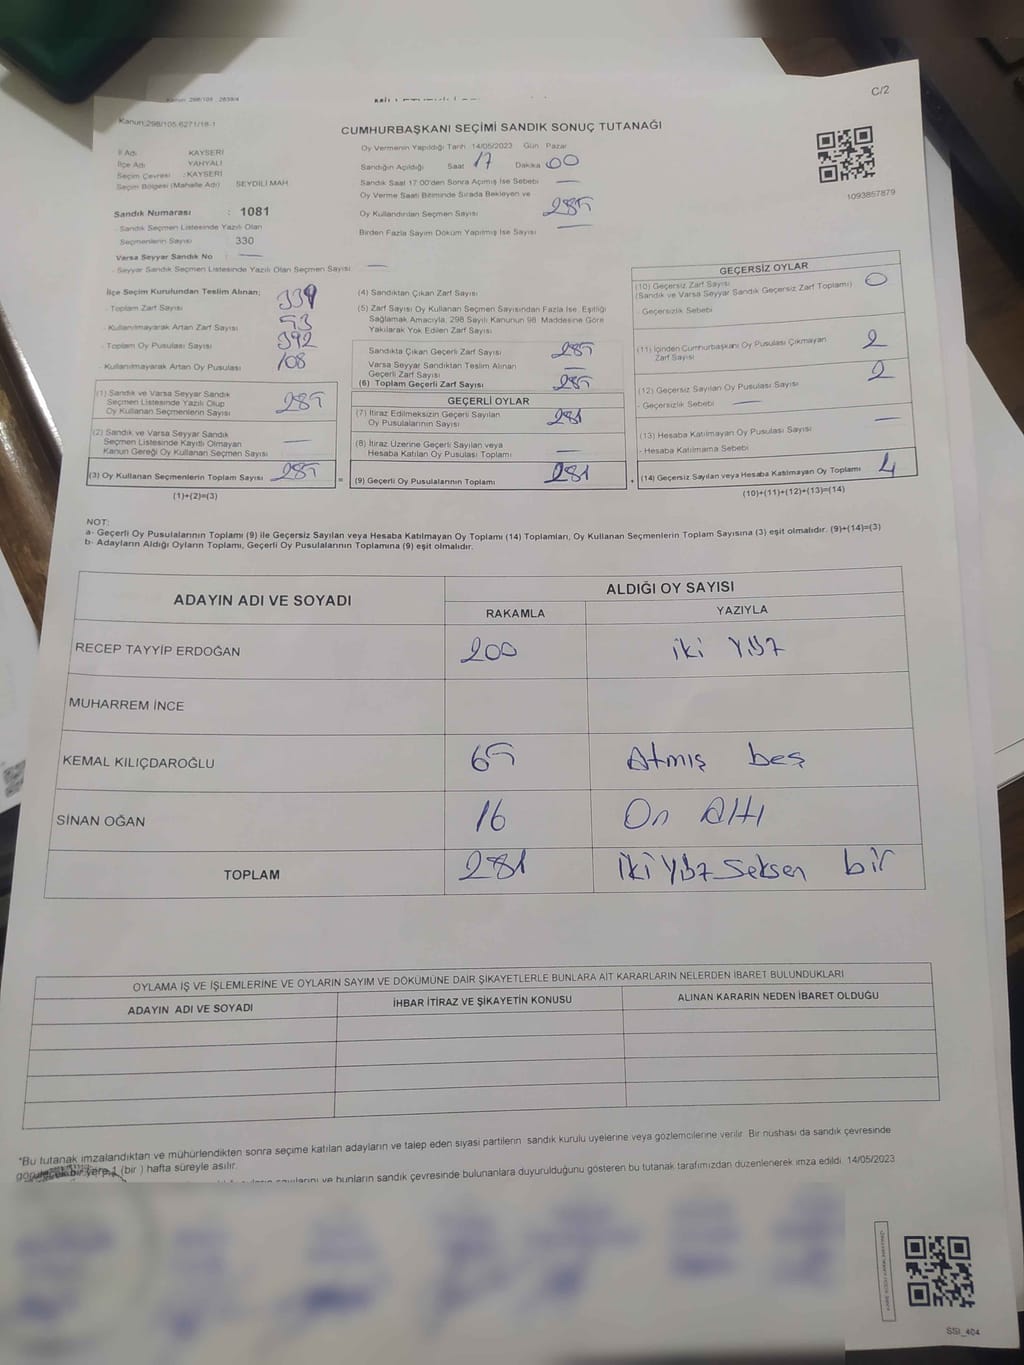 C/2
Kanun:298/105.6271/18-1
CUMHURBAŞKANI SEÇİMİ SANDIK SONUÇ TUTANAĞI
İl Adı KAYSERİ
İlçe Adı YAHYALI
Seçim Çevresi :KAYSERİ
Seçim Bölgesi (Mahalle Adı) SEYDİLİ MAH
Sandık Numarası : 1081
- Sandık Seçmen Listesinde Yazılı Olan
Seçmenlerin Sayısı 330
Varsa Seyyar Sandık No —
- Seyyar Sandık Seçmen Listesinde Yazılı Olan Seçmen Sayısı —
Oy Vermenin Yapıldığı Tarih :14/05/2023 Gün Pazar
Sandığın Açıldığı Saat 17 Dakika 00
Sandık Saat 17:00'den Sonra Açımış İse Sebebi —
Oy Verme Saati Bitiminde Sırada Bekleyen ve
Oy Kullandırılan Seçmen Sayısı 285
Birden Fazla Sayım Döküm Yapılmış İse Sayısı —
1093857879
İlçe Seçim Kurulundan Teslim Alınan;
- Toplam Zarf Sayısı 339
- Kullanılmayarak Artan Zarf Sayısı 53
- Toplam Oy Pusulası Sayısı 392
- Kullanılmayarak Artan Oy Pusulası 108
(1) Sandık ve Varsa Seyyar Sandık
Seçmen Listesinde Yazılı Olup
Oy Kullanan Seçmenlerin Sayısı 285
(2) Sandık ve Varsa Seyyar Sandık
Seçmen Listesinde Kayıtlı Olmayan
Kanun Gereği Oy Kullanan Seçmen Sayısı —
(3) Oy Kullanan Seçmenlerin Toplam Sayısı 285
(1)+(2)=(3)
(4) Sandıktan Çıkan Zarf Sayısı
(5) Zarf Sayısı Oy Kullanan Seçmen Sayısından Fazla İse, Eşitliği
Sağlamak Amacıyla, 298 Sayılı Kanunun 98. Maddesine Göre
Yakılarak Yok Edilen Zarf Sayısı
Sandıkta Çıkan Geçerli Zarf Sayısı 285
Varsa Seyyar Sandıktan Teslim Alınan
Geçerli Zarf Sayısı —
(6) Toplam Geçerli Zarf Sayısı 285
GEÇERLİ OYLAR
(7) İtiraz Edilmeksizin Geçerli Sayılan
Oy Pusulalarının Sayısı 281
(8) İtiraz Üzerine Geçerli Sayılan veya
Hesaba Katılan Oy Pusulası Toplamı —
= (9) Geçerli Oy Pusulalarının Toplamı 281
GEÇERSİZ OYLAR
(10) Geçersiz Zarf Sayısı 0
(Sandık ve Varsa Seyyar Sandık Geçersiz Zarf Toplamı)
- Geçersizlik Sebebi
(11) İçinden Cumhurbaşkanı Oy Pusulası Çıkmayan 2
Zarf Sayısı
(12) Geçersiz Sayılan Oy Pusulası Sayısı 2
- Geçersizlik Sebebi —
(13) Hesaba Katılmayan Oy Pusulası Sayısı —
- Hesaba Katılmama Sebebi
+ (14) Geçersiz Sayılan veya Hesaba Katılmayan Oy Toplamı 4
(10)+(11)+(12)+(13)=(14)
NOT:
a- Geçerli Oy Pusulalarının Toplamı (9) ile Geçersiz Sayılan veya Hesaba Katılmayan Oy Toplamı (14) Toplamları, Oy Kullanan Seçmenlerin Toplam Sayısına (3) eşit olmalıdır. (9)+(14)=(3)
b- Adayların Aldığı Oyların Toplamı, Geçerli Oy Pusulalarının Toplamına (9) eşit olmalıdır.
ADAYIN ADI VE SOYADI ALDIĞI OY SAYISI
RAKAMLA YAZIYLA
RECEP TAYYİP ERDOĞAN 200 iki yüz
MUHARREM İNCE
KEMAL KILIÇDAROĞLU 65 Atmış beş
SİNAN OĞAN 16 On Altı
TOPLAM 281 iki yüz Seksen bir
OYLAMA İŞ VE İŞLEMLERİNE VE OYLARIN SAYIM VE DÖKÜMÜNE DAİR ŞİKAYETLERLE BUNLARA AİT KARARLARIN NELERDEN İBARET BULUNDUKLARI
ADAYIN ADI VE SOYADI İHBAR İTİRAZ VE ŞİKAYETİN KONUSU ALINAN KARARIN NEDEN İBARET OLDUĞU
"Bu tutanak imzalandıktan ve mühürlendikten sonra seçime katılan adayların ve talep eden siyasi partilerin sandık kurulu üyelerine veya gözlemcilerine verilir. Bir nüshası da sandık çevresinde
görülecek bir yere 1 (bir ) hafta süreyle asılır.
ve bunların sandık çevresinde bulunanlara duyurulduğunu gösteren bu tutanak tarafımızdan düzenlenerek imza edildi. 14/05/2023
SSI_404